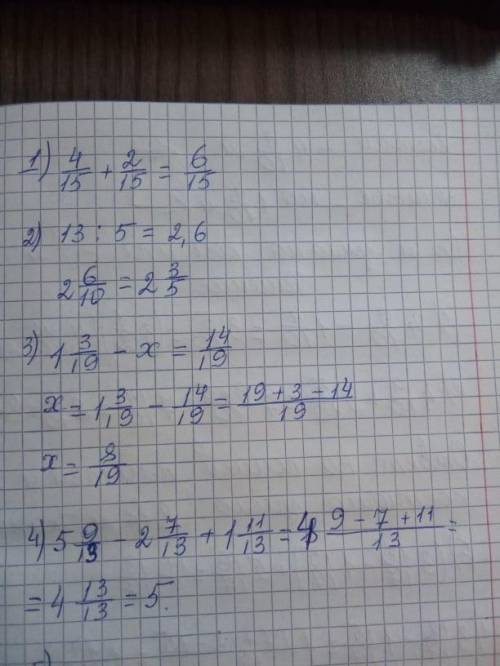 1) 4/15 + 2/15 = 6/15
2) 13 : 5 = 2,6
2 6/10 = 2 3/5
3) 1 3/19 - x = 14/19
x = 1 3/19 - 14/19 = (19 + 3 - 14)/19
x = 8/19
4) 5 9/13 - 2 7/13 + 1 11/13 = 4 (9 - 7 + 11)/13 =
= 4 13/13 = 5.